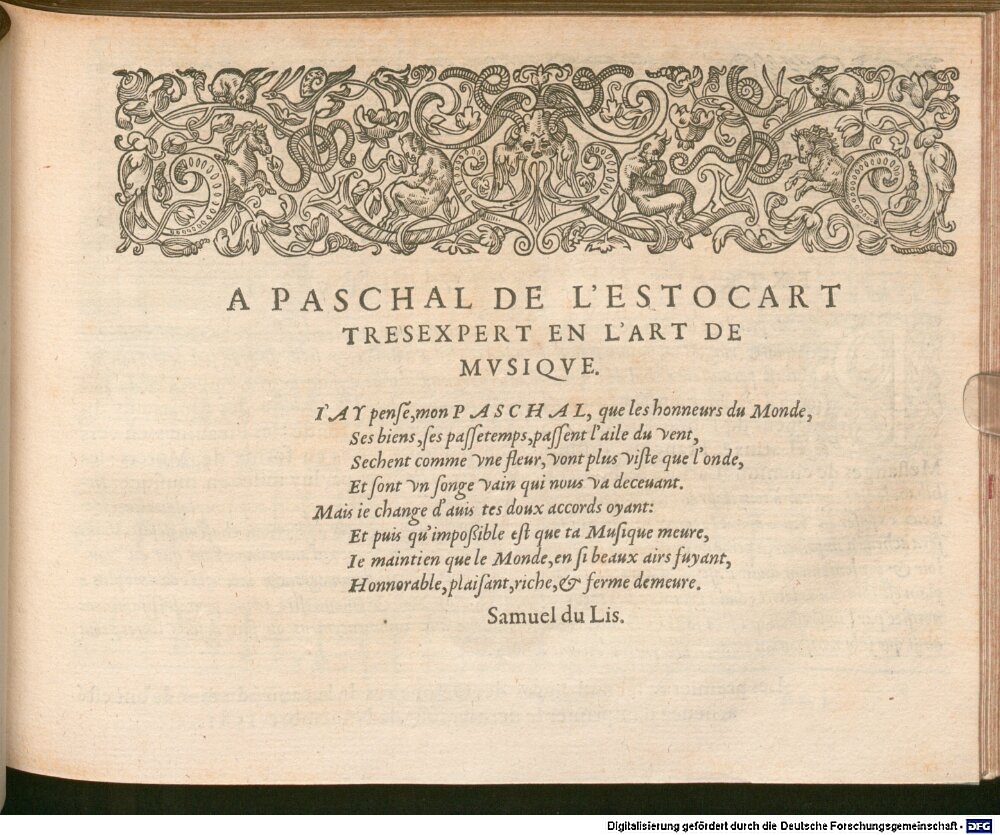 A PASCHAL DE L'ESTOCART
TRESEXPERT EN L'ART DE
MVSIQVE.
I'AY pensé, mon PASCHAL, que les honneurs du Monde,
Ses biens, ses passetemps, passent l'aile du vent,
Sechent comme vne fleur, vont plus viste que l'onde,
Et sont vn songe vain qui nous va deceuant.
Mais ie change d'auis tes doux accords oyant:
Et puis qu'impoßible est que ta Musique meure,
Ie maintien que le Monde, en si beaux airs fuyant,
Honnorable, plaisant, riche, & ferme demeure.
Samuel du Lis.
Digitalisierung gefördert durch die Deutsche Forschungsgemeinschaft - DFG